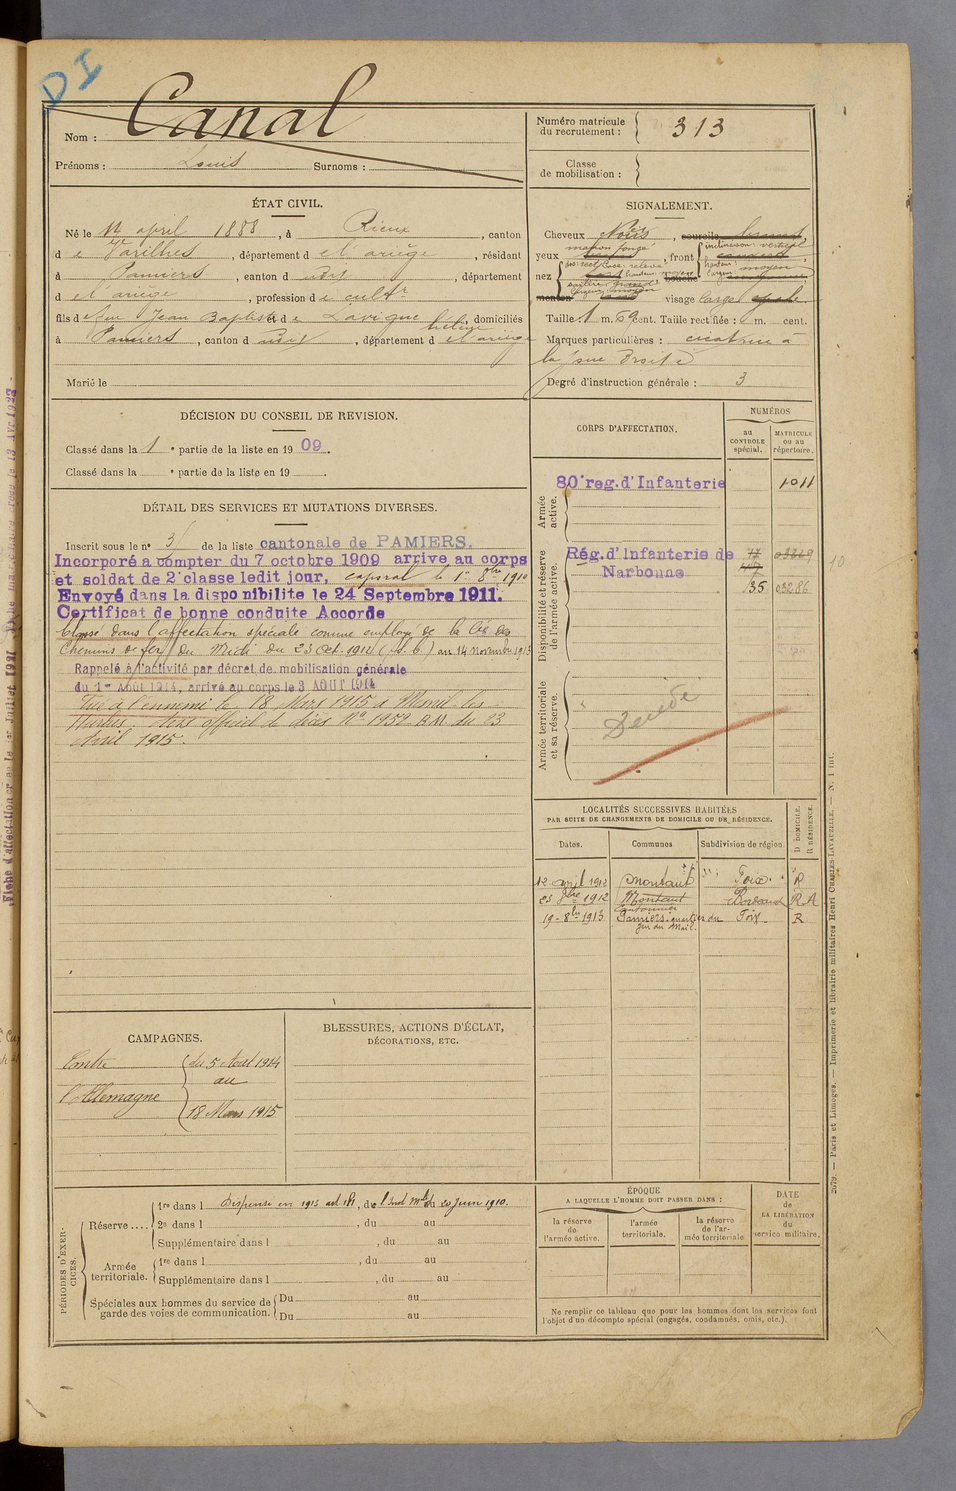 DI
Nom : Canal
Prénoms : Louis Surnoms :
Numéro matricule du recrutement : 313
Classe de mobilisation :
ÉTAT CIVIL.
Né le 12 april 1888, à Rieux, canton
de Varilhes, département de l'ariège, résidant
à Pamiers, canton d dudit, département
de l'ariège, profession de cultr
fils de feu Jean Baptiste et de Lavigne hélène, domiciliés
à Pamiers, canton d dudit, département de l'ariège
Marié le
SIGNALEMENT.
Cheveux Noirs, sourcils
yeux marron foncé, front inclinaison: vertical
hauteur: moyen
largeur: moyen
nez dos: rect. base: relevé
hauteur moyen
saillie: grande
largeur: moyen
bouche
menton visage large
Taille 1 m. 69 cent. Taille rectifiée : m. cent.
Marques particulières : cicatrice à
la joue Droite
Degré d'instruction générale : 3
DÉCISION DU CONSEIL DE REVISION.
Classé dans la 1e partie de la liste en 1909.
Classé dans la e partie de la liste en 19 .
DÉTAIL DES SERVICES ET MUTATIONS DIVERSES.
Inscrit sous le n° 3 de la liste cantonale de PAMIERS.
Incorporé a compter du 7 octobre 1909 arrive au corps
et soldat de 2e classe ledit jour, caporal le 1er 8bre 1910
Envoyé dans la disponibilite le 24 Septembre 1911.
Certificat de bonne conduite Accorde
Classé dans l'affectation spéciale comme employé de la Cie des
Chemins de fer du Midi du 23 Oct. 1912 au 14 Novembre 1913
Rappelé à l'activité par décret de mobilisation générale
du 1er Août 1914, arrivé au corps le 3 AOUT 1914
Tué à l'ennemi le 18 Mars 1915 à Mesnil-les-
Hurlus. Avis officiel de décès No 1952 B.M. du 23
Avril 1915.
CORPS D'AFFECTATION.
NUMÉROS
au CONTROLE spécial.
MATRICULE ou au répertoire.
Armée active.
80e reg. d'Infanterie 1011
Disponibilité et réserve de l'armée active.
Rég. d'Infanterie de
Narbonne
135 03286
Armée territoriale et sa réserve.
Décédé
10
LOCALITÉS SUCCESSIVES HABITÉES
PAR SUITE DE CHANGEMENTS DE DOMICILE OU DE RÉSIDENCE.
D DOMICILE. R RÉSIDENCE.
Dates. Communes Subdivision de région.
12 avril 1912 Montaut Foix R
23 8bre 1912 Montaut Bordeaux R A
19-8bre 1913 Pamiers quartier du Foix R
CAMPAGNES.
Contre l'Allemagne
du 5 Août 1914
au
18 Mars 1915
BLESSURES, ACTIONS D'ÉCLAT, DÉCORATIONS, ETC.
PÉRIODES D'EXERCICES.
Réserve....
1re dans l Dispensé en 1913 art. de l'Inst Mlle du 20 Juin 1910.
2e dans l , du au
Supplémentaire dans l , du au
Armée territoriale.
1re dans l , du au
Supplémentaire dans l , du au
Spéciales aux hommes du service de garde des voies de communication.
Du au
Du au
ÉPOQUE
A LAQUELLE L'HOMME DOIT PASSER DANS :
la réserve de l'armée active.
l'armée territoriale.
la réserve de l'armée territoriale
DATE de LA LIBÉRATION du service militaire.
Ne remplir ce tableau que pour les hommes dont les services font
l'objet d'un décompte spécial (engagés, condamnés, omis, etc.).
2679. — Paris et Limoges. — Imprimerie et librairie militaires Henri CHARLES-LAVAUZELLE. — N. 1 int.